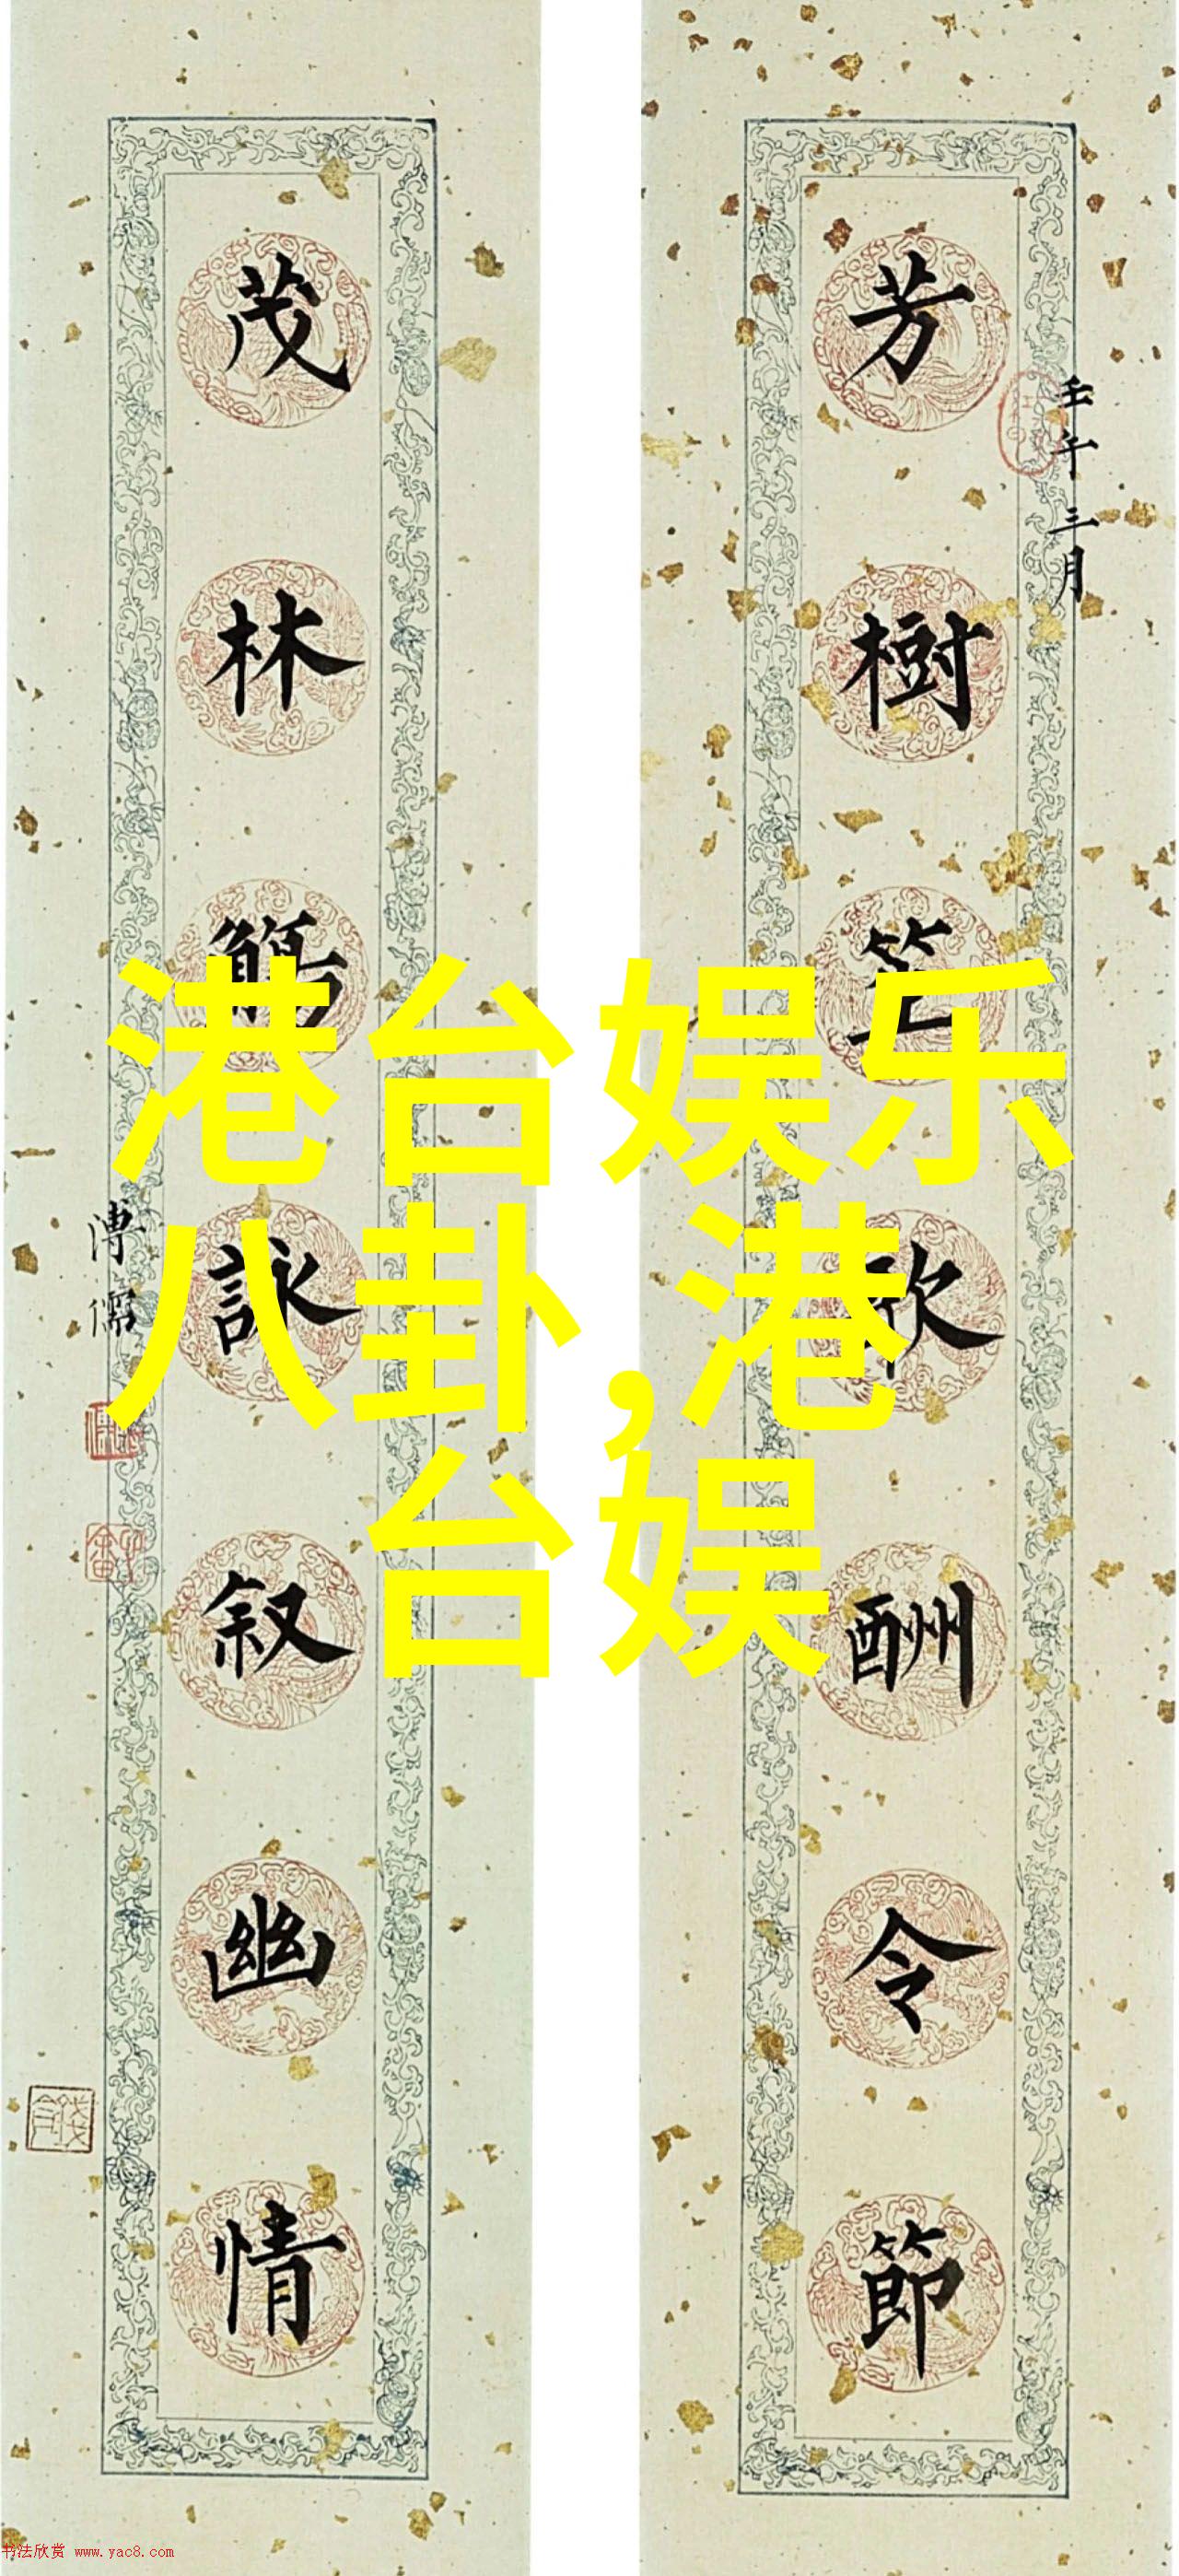 芳樹笙歌酬令節
壬午三月
茂林觴詠叙幽情
溥儒
港台娱乐
八卦,港
台娱
书法欣赏 www.yac8.com